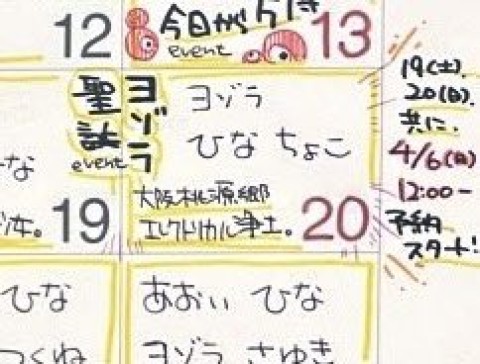 12
今日が
event
13
聖誕
event
ヨゾラ
な
19
ヨゾラ
ひな ちょこ
大阪桃源郷
エレクトリカル浄土。
20
19(土).
20(日).
共に.
4/6(日)
12:00−
予約
スタート!
ひな
つくね
あおい ひな
ヨゾラ さゆき